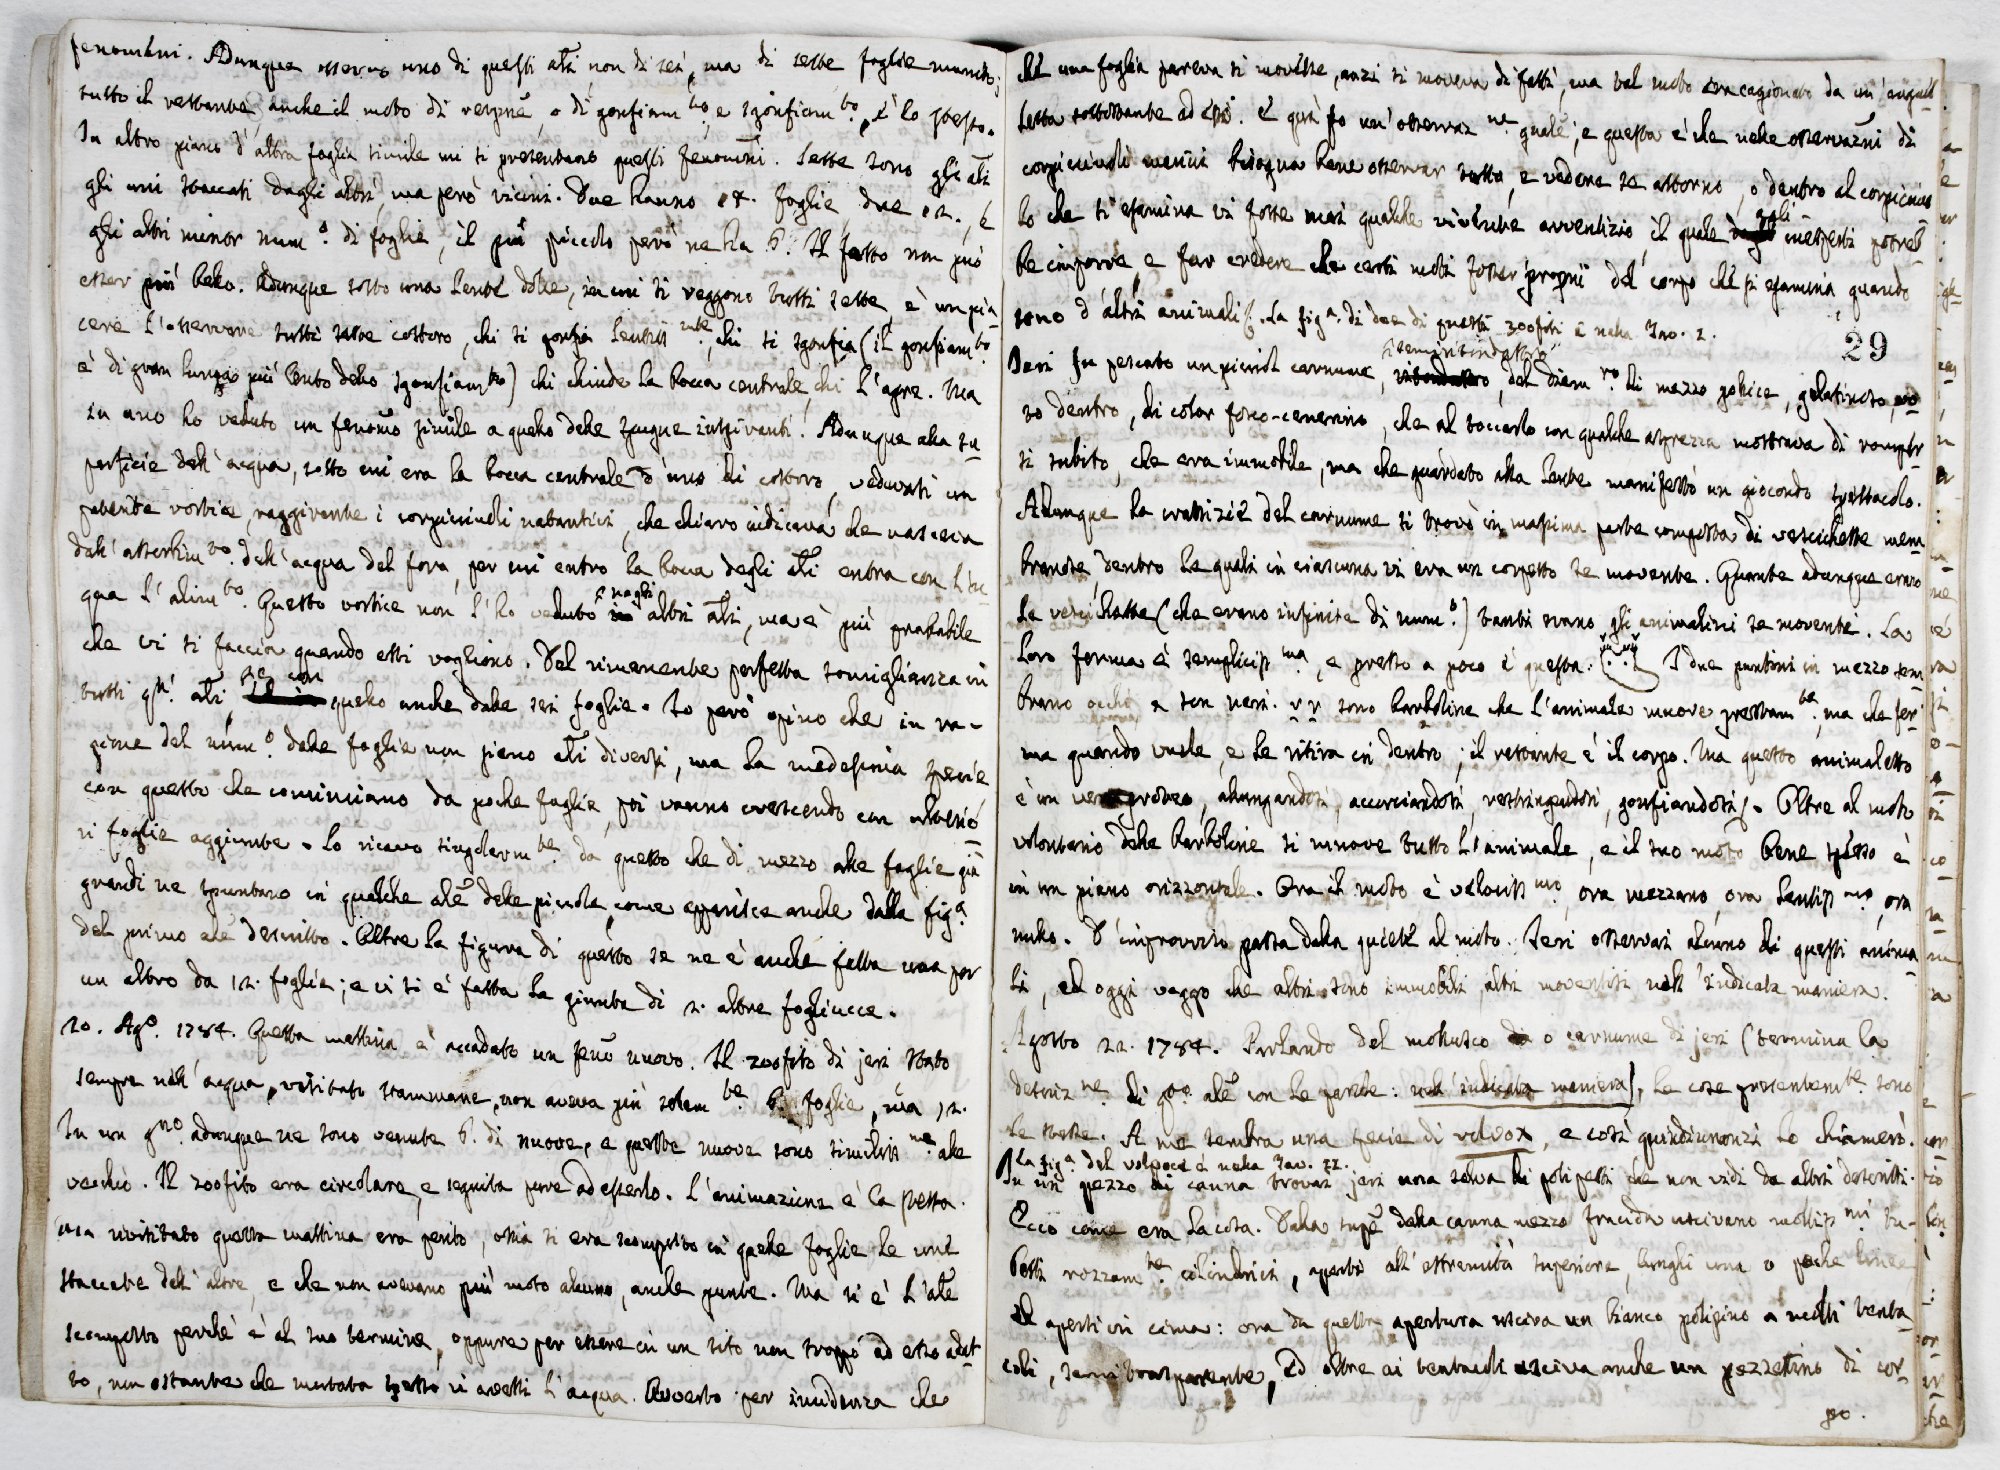 fenomeni. Adunque osservo uno di questi ali non di sei, ma di sette foglie munito;
tutto il restante, anche il moto di respire, o di gonfiam.to, e sgonfiam.to, è lo stesso.
In altro piano d'altra foglia simile mi si presentano questi fenomeni. Sette sono gli ali
gli uni staccati dagli altri, ma però vicini. Due hanno 14. foglie, due 12., e
gli altri minor num.o di foglie, il più piccolo però ne ha 6. Il fatto non può
esser più bello. Adunque sotto una lente dolce, in cui si veggono tutti sette, è un pia-
cere l'osservare tutti sette costoro, chi si gonfia lentiss.nte, chi si sgonfia (il gonfiam.to
è di gran lunga più lento dello sgonfiam.to) chi chiude la bocca centrale, chi l'apre. Ma
in uno ho veduto un fenomo simile a quello delle spugne inspiranti. Adunque alla su-
perficie dell'acqua, sotto cui era la bocca centrale d'uno di costoro, vedevasi un
potente vortice, raggirante i corpicciuoli natantivi, che chiaro indicava che nasceva
dall'assorbim.to dell'acqua del foro, per cui entro la bocca degli ali entra con l'ac-
qua l'alim.to. Questo vortice non l'ho veduto negli altri ali, ma è più probabile
che vi si faccia quando essi vogliono. Del rimanente perfetta somiglianza in
tutti q.ti ali, se con quello anche dalle sei foglie. Io però opino che in ra-
gione del num.o delle foglie non sieno ali diversi, ma la medesima specie
con questo che cominciano da poche foglie, poi vanno crescendo con ulterio-
ri foglie aggiunte. Lo ricavo singolarm.te da questo che di mezzo alle foglie già
grandi ne spuntano in qualche ale delle piccole, come apparisce anche dalla fig.a
del primo ale descritto. Oltre la figura di questo se ne è anche fatta una per
un altro da 12. foglie; e vi si è fatta la giunta di 2. altre fogliucce.
20. Ag.o 1784. Questa mattina è accaduto un feno nuovo. Il zoofito di jeri stato
sempre nell'acqua, visitato stammane, non aveva più solam.te 6. foglie, ma 12.
In un g.no adunque ne sono venute 6. di nuove, e queste nuove sono similiss.me alle
vecchie. Il zoofito era circolare, e seguita pure ad esserlo. L'animazione è la stessa.
Ma rivisitato questa mattina era perito, ossia si era scomposto in quelle foglie le une
staccate dell'altre, e che non avevano più moto alcuno, anche punte. Ma si è l'ale
scomposto perchè è al suo termine, oppure per essere in un sito non troppo ad esso adat-
to, non ostante che mutata spesso vi avessi l'acqua. Avverto per incidenza che
che una foglia pareva si movesse, anzi si moveva di fatti, ma tal moto era cagionato da un'anguil-
letta sottostante ad essa. E quì fo un'osservaz.ne gnale, e questa è che nelle osservazni di
corpicciuoli menini bisogna bene osservar tutto, e vedere se attorno, o dentro al corpicciuo-
lo che si esamina vi fosse mai qualche vivente avventizio il quale agli inesperti potreb-
be imporre, e far credere che certi moti fosser proprii del corpo che si esamina, quando
sono d'altri animali. La fig.a di due di questi zoofiti è nella Tav. 2.
29
Jeri fu pescato un piccol carnume, semiritondastro, del diam.ro di mezzo pollice, gelatinoso, vo-
to dentro, di color fosco-cenerino, che al toccarlo con qualche asprezza mostrava di romper-
si subito, che era immobile, ma che guardato alla lente manifestò un giocondo spettacolo.
Adunque la crassizie del carnume si trovò in massima parte composta di vescichette mem-
branose, dentro le quali in ciascuna vi era un corpetto se movente. Quante adunque erano
le vescichette (che erano infinite di num.o) tanti erano gli animalini se movente. La
loro forma è sempliciss.ma, e presso a poco è questa. I due puntini in mezzo sem-
brano occhi e son neri. v v sono barboline che l'animale muove prestam.te, ma che fer-
ma quando vuole, e le ritira in dentro; il restante è il corpo. Ma questo animaletto
è un vero proteo, allungandosi, accorciandosi, restringendosi, gonfiandosi. Oltre al moto
volontario delle barboline si muove tutto l'animale, e il suo moto bene spesso è
in un piano orizzontale. Ora il moto è velociss.mo, ora mezzano, ora lentiss.mo, ora
nullo. D'improvviso passa dalla quiete al moto. Jeri osservai alcuno di questi anima-
li, ed oggi veggo che altri sono immobili, altri moventisi nell'indicata maniera.
Agosto 22. 1784. Parlando del mollusco o carnume di jeri (termina la
descriz.ne di q.to ale con le parole: nell'indicata maniera), le cose presentem.te sono
le stesse. A me sembra una specie di volvox, e così quindinnanzi lo chiamerò.
La fig.a del volvoce è nella Tav. 22.
In un pezzo di canna trovai jeri una selva di polipetti che non vidi da altri descritti.
Ecco come era la cosa. Dalla supe della canna mezzo fracida uscivano molliss.mi tu-
betti rozzam.te cilindrici, aperti all'estremità superiore, lunghi una o poche linee
ed aperti in cima: ora da questa apertura usciva un bianco polipino a molti tenta-
coli, semitrasparente, ed oltre ai tentacoli usciva anche un pezzettino di cor-
po.